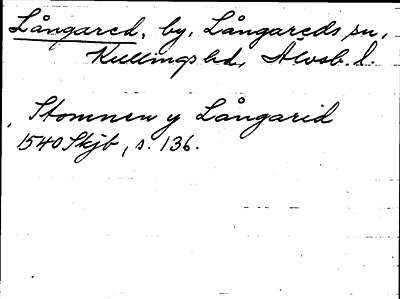 Långared, by, Långareds sn,
Kullings hd, Älvsb. l.
Stommen y Långarid
1540 Skjb, s. 136.